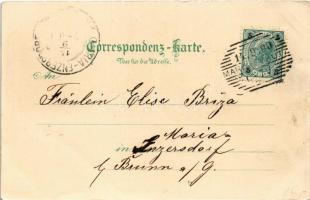 Correspondenz-Karte.
Nur für die Adresse.
An
Fräulein Elise Briza
Maria
in Enzersdorf
b/ Brunn a/G.